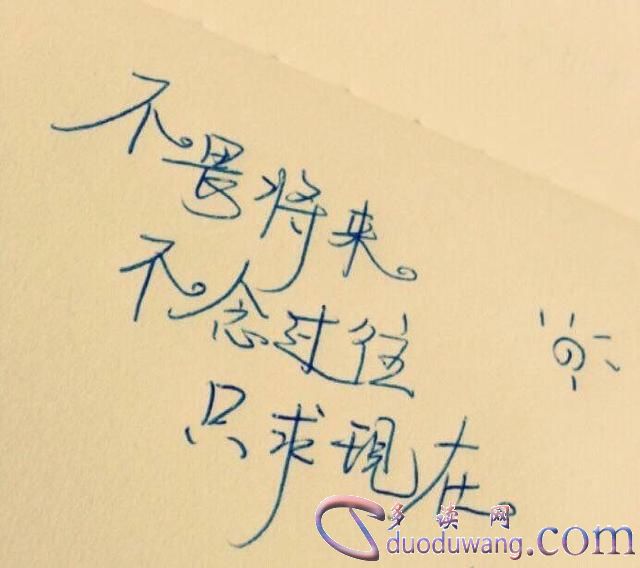 不畏将来。
不念过往
只求现在。
多读网
duoduwang.com